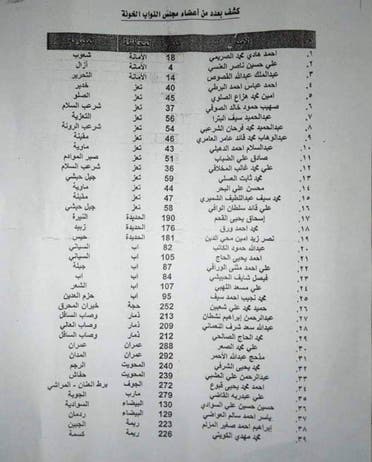 كشف بعدد من أعضاء مجلس النواب الخونة
١. احمد هادي محمد الصريمي 18 الأمانة شعوب
٢. علي حسين ناصر العنسي 4 الأمانة أزال
٣. عبدالملك عبدالله القصوص 14 الأمانة التحرير
٤. احمد عباس احمد البرطي 40 تعز خدير
٥. امين محمد هزاع الصلوي 45 تعز الصلو
٦. صهيب حمود خالد الصوفي 37 تعز شرعب السلام
٧. عبدالحميد سيف البترا 56 تعز التعزية
٨. عبدالحميد محمد فرحان الشرعبي 54 تعز شرعب الرونة
٩. عبدالوهاب محمد قائد عامر العامري 46 تعز مقبنة
١٠. عبدالسلام احمد الدهبلي 43 تعز ماوية
١١. صادق علي الضباب 51 تعز صبر الموادم
١٢. علي محمد غالب المخلافي 36 تعز شرعب السلام
١٣. محمد ثابت العسلي 59 تعز جبل حبشي
١٤. محسن علي البحر 44 تعز ماوية
١٥. محمد سيف عبداللطيف الشميري 47 تعز مقبنة
١٦. علي قائد سلطان الوافي 58 تعز جبل حبشي
١٧. إسحاق يحيى القعم 190 الحديدة
١٨. احمد محمد ورق 176 الحديدة زبيد
١٩. نصر زيد امين محي الدين 181 الحديدة حيس
٢٠. عبدالله حمود الكاتب 82 اب السياني
٢١. احمد محمد يحيى الحاج 105 اب السياني
٢٢. علي احمد مثنى الوراقي 87 اب جبلة
٢٣. فيصل شايف الحبيشي 84 اب
٢٤. علي مسعد اللهبي 107 اب الشعر
٢٥. محمد نجيب احمد سيف 95 اب حزم العدين
٢٦. حميد علي شعبين 252 حجة خيران المحرق
٢٧. عبدالرحمن إبراهيم نشطان 213 ذمار وصاب السافل
٢٨. عبدالله سعد شرف النعماني 209 ذمار وصاب العالي
٢٩. محمد الحاج الصالحي 212 ذمار وصاب السافل
٣٠. علي محمد الصعر 288 عمران عمران
٣١. مذحج عبدالله الأحمر 292 عمران المدان
٣٢. محمد يحيى الشرفي 240 المحويت الرجم
٣٣. عبدالرحمن علي العشبي 239 المحويت حفاش
٣٤. احمد محمد يحيى قبوع 272 الجوف برط العنان - المراشي
٣٥. علي عبدربه القاضي 279 مارب الجوبة
٣٦. حسين حسين علي السوادي 130 البيضاء السوادية
٣٧. ياسر احمد سالم العواضي 129 البيضاء ردمان
٣٨. إبراهيم احمد صغير المزلم 223 ريمة الجبين
٣٩. محمد مهدي الكويتي 226 ريمة كسمة